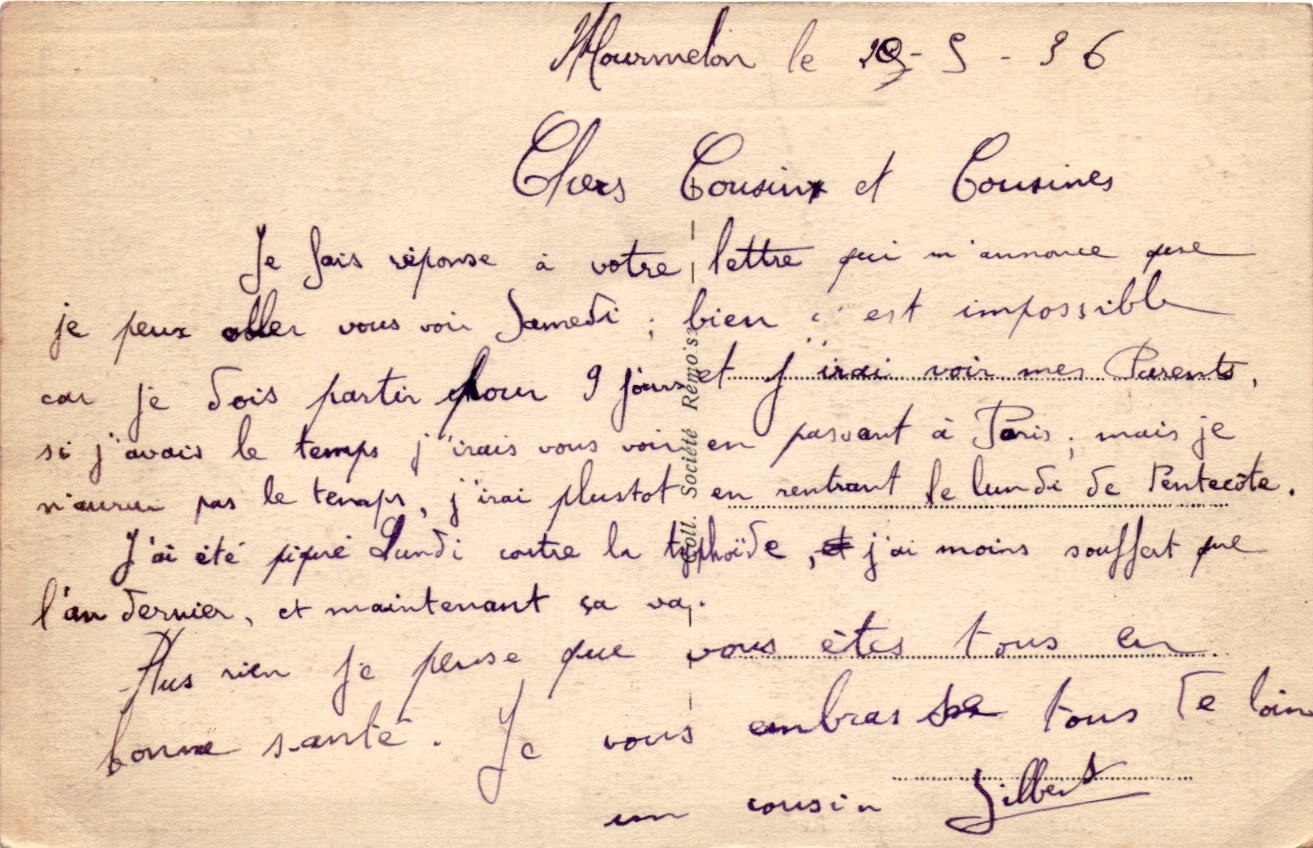 Mourmelon le 20-5-36
Chers Cousins et Cousines
Je fais réponse à votre lettre qui m'annonce que
je peux aller vous voir Samedi ; bien c'est impossible
car je dois partir pour 9 jours et j'irai voir mes Parents,
si j'avais le temps j'irais vous voir en passant à Paris, mais je
n'aurai pas le temps, j'irai plustot en rentrant le lundi de Pentecôte.
J'ai été piqué Lundi contre la typhoïde, et j'ai moins souffert que
l'an dernier, et maintenant sa va.
Plus rien je pense que vous êtes tous en
bonne santé. Je vous embrasse tous de loin
un cousin Gilbert
Coll. Société Rémo's